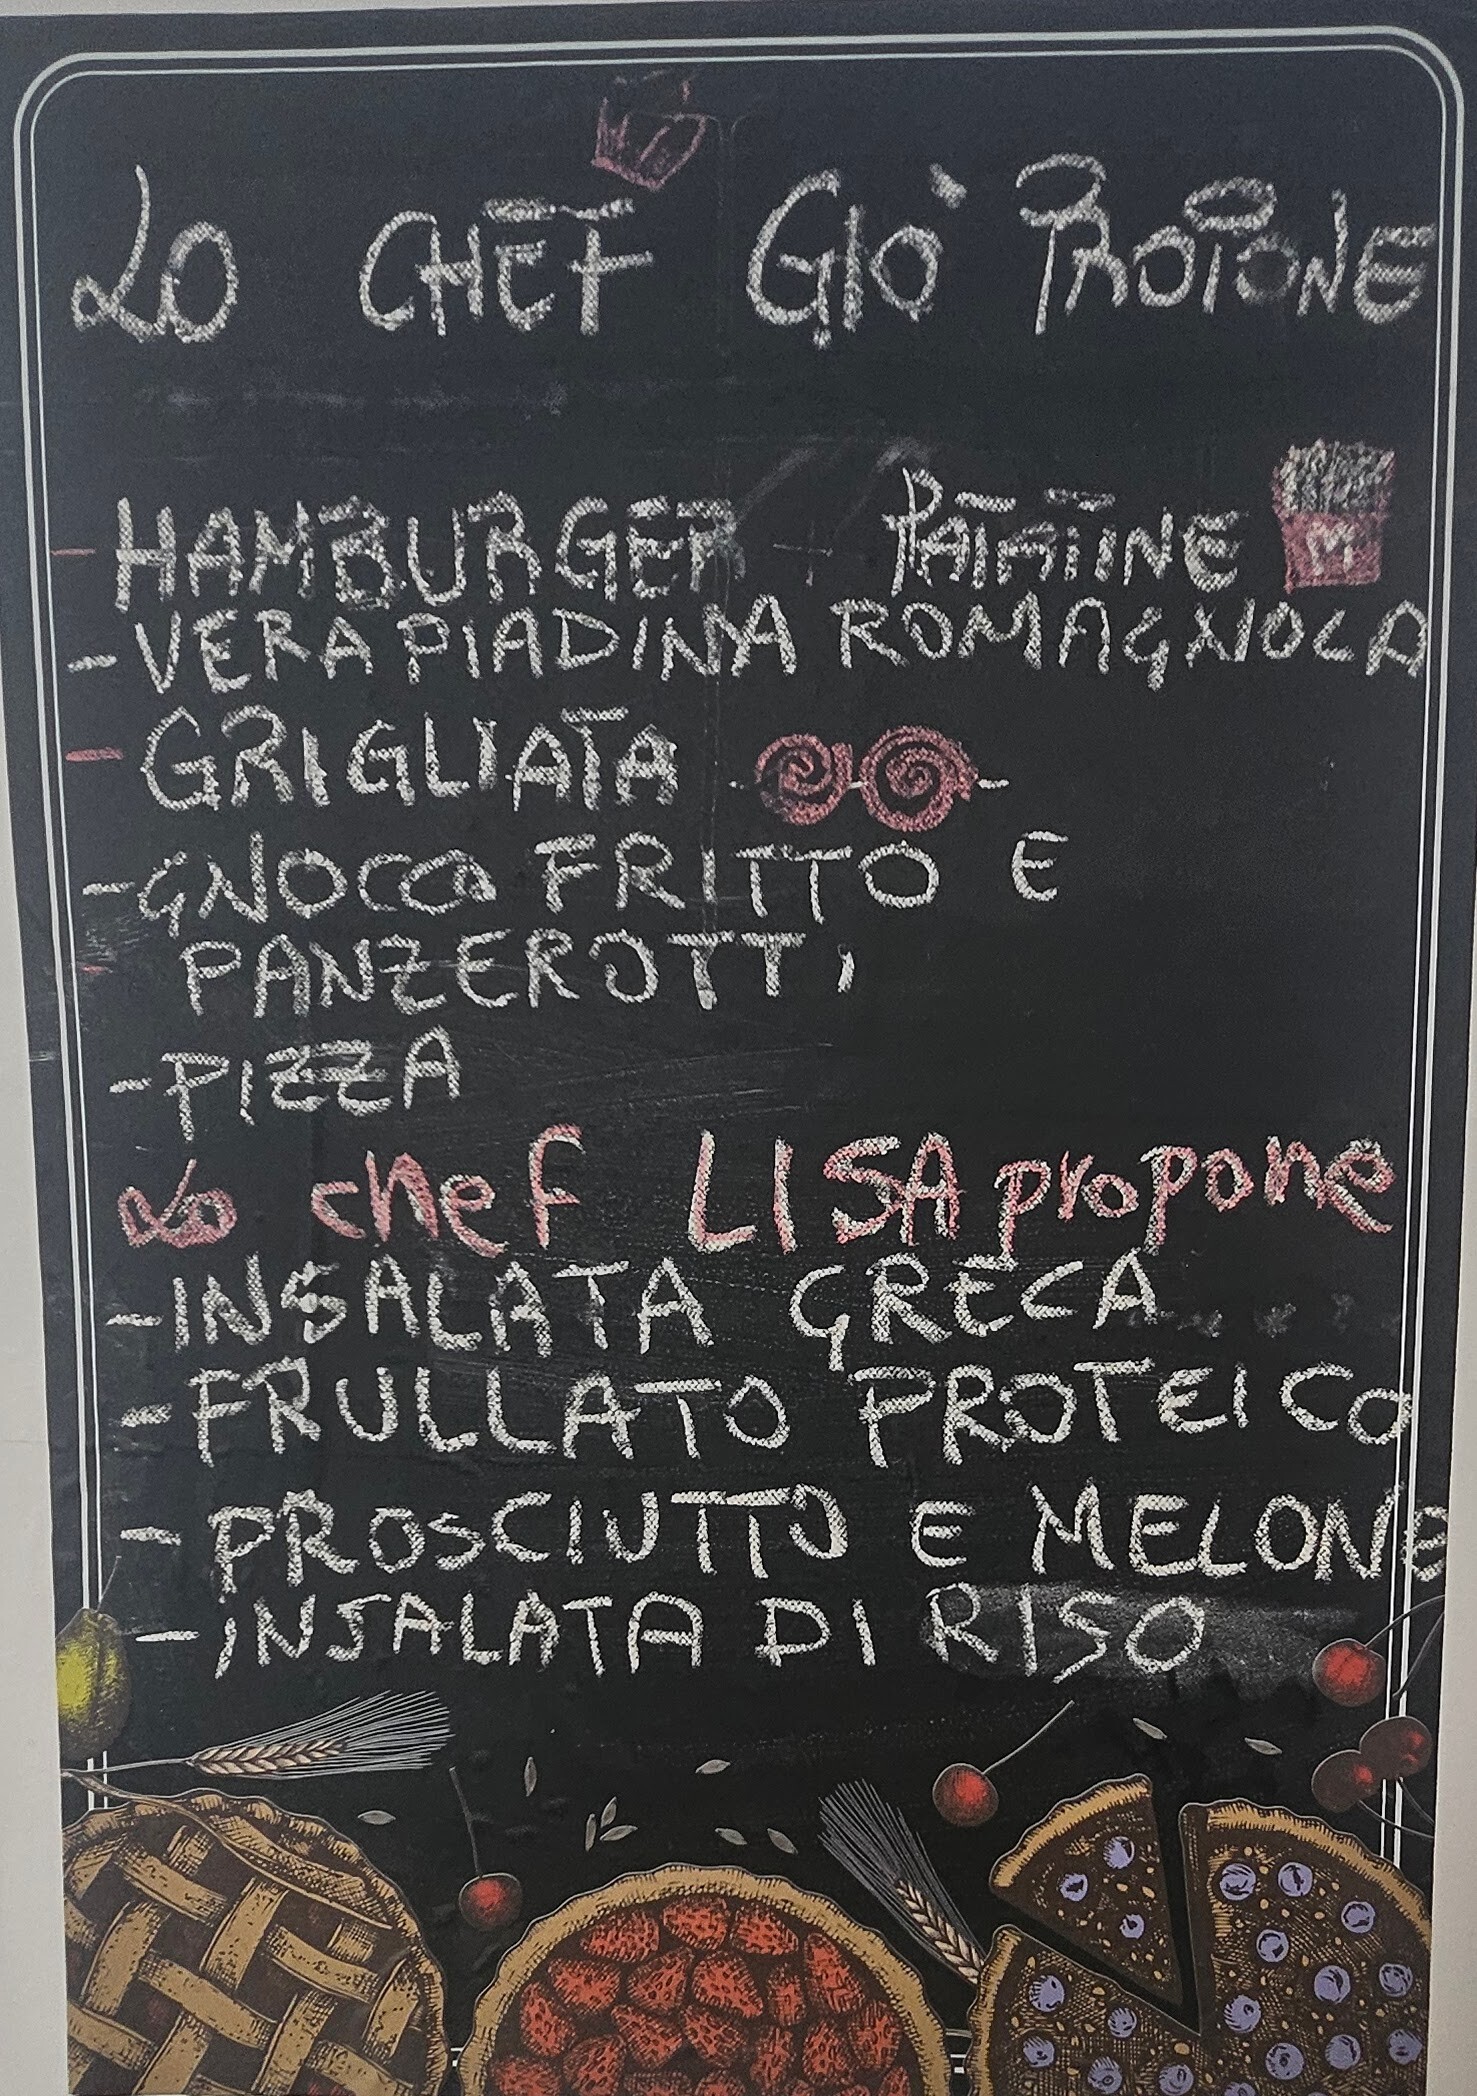 LO CHEF GIÒ PROPONE
- HAMBURGER + PATATINE M
- VERA PIADINA ROMAGNOLA
- GRIGLIATA
- GNOCCO FRITTO E
PANZEROTTI
- PIZZA
Lo chef LISA propone
- INSALATA GRECA
- FRULLATO PROTEICO
- PROSCIUTTO E MELONE
- INSALATA DI RISO